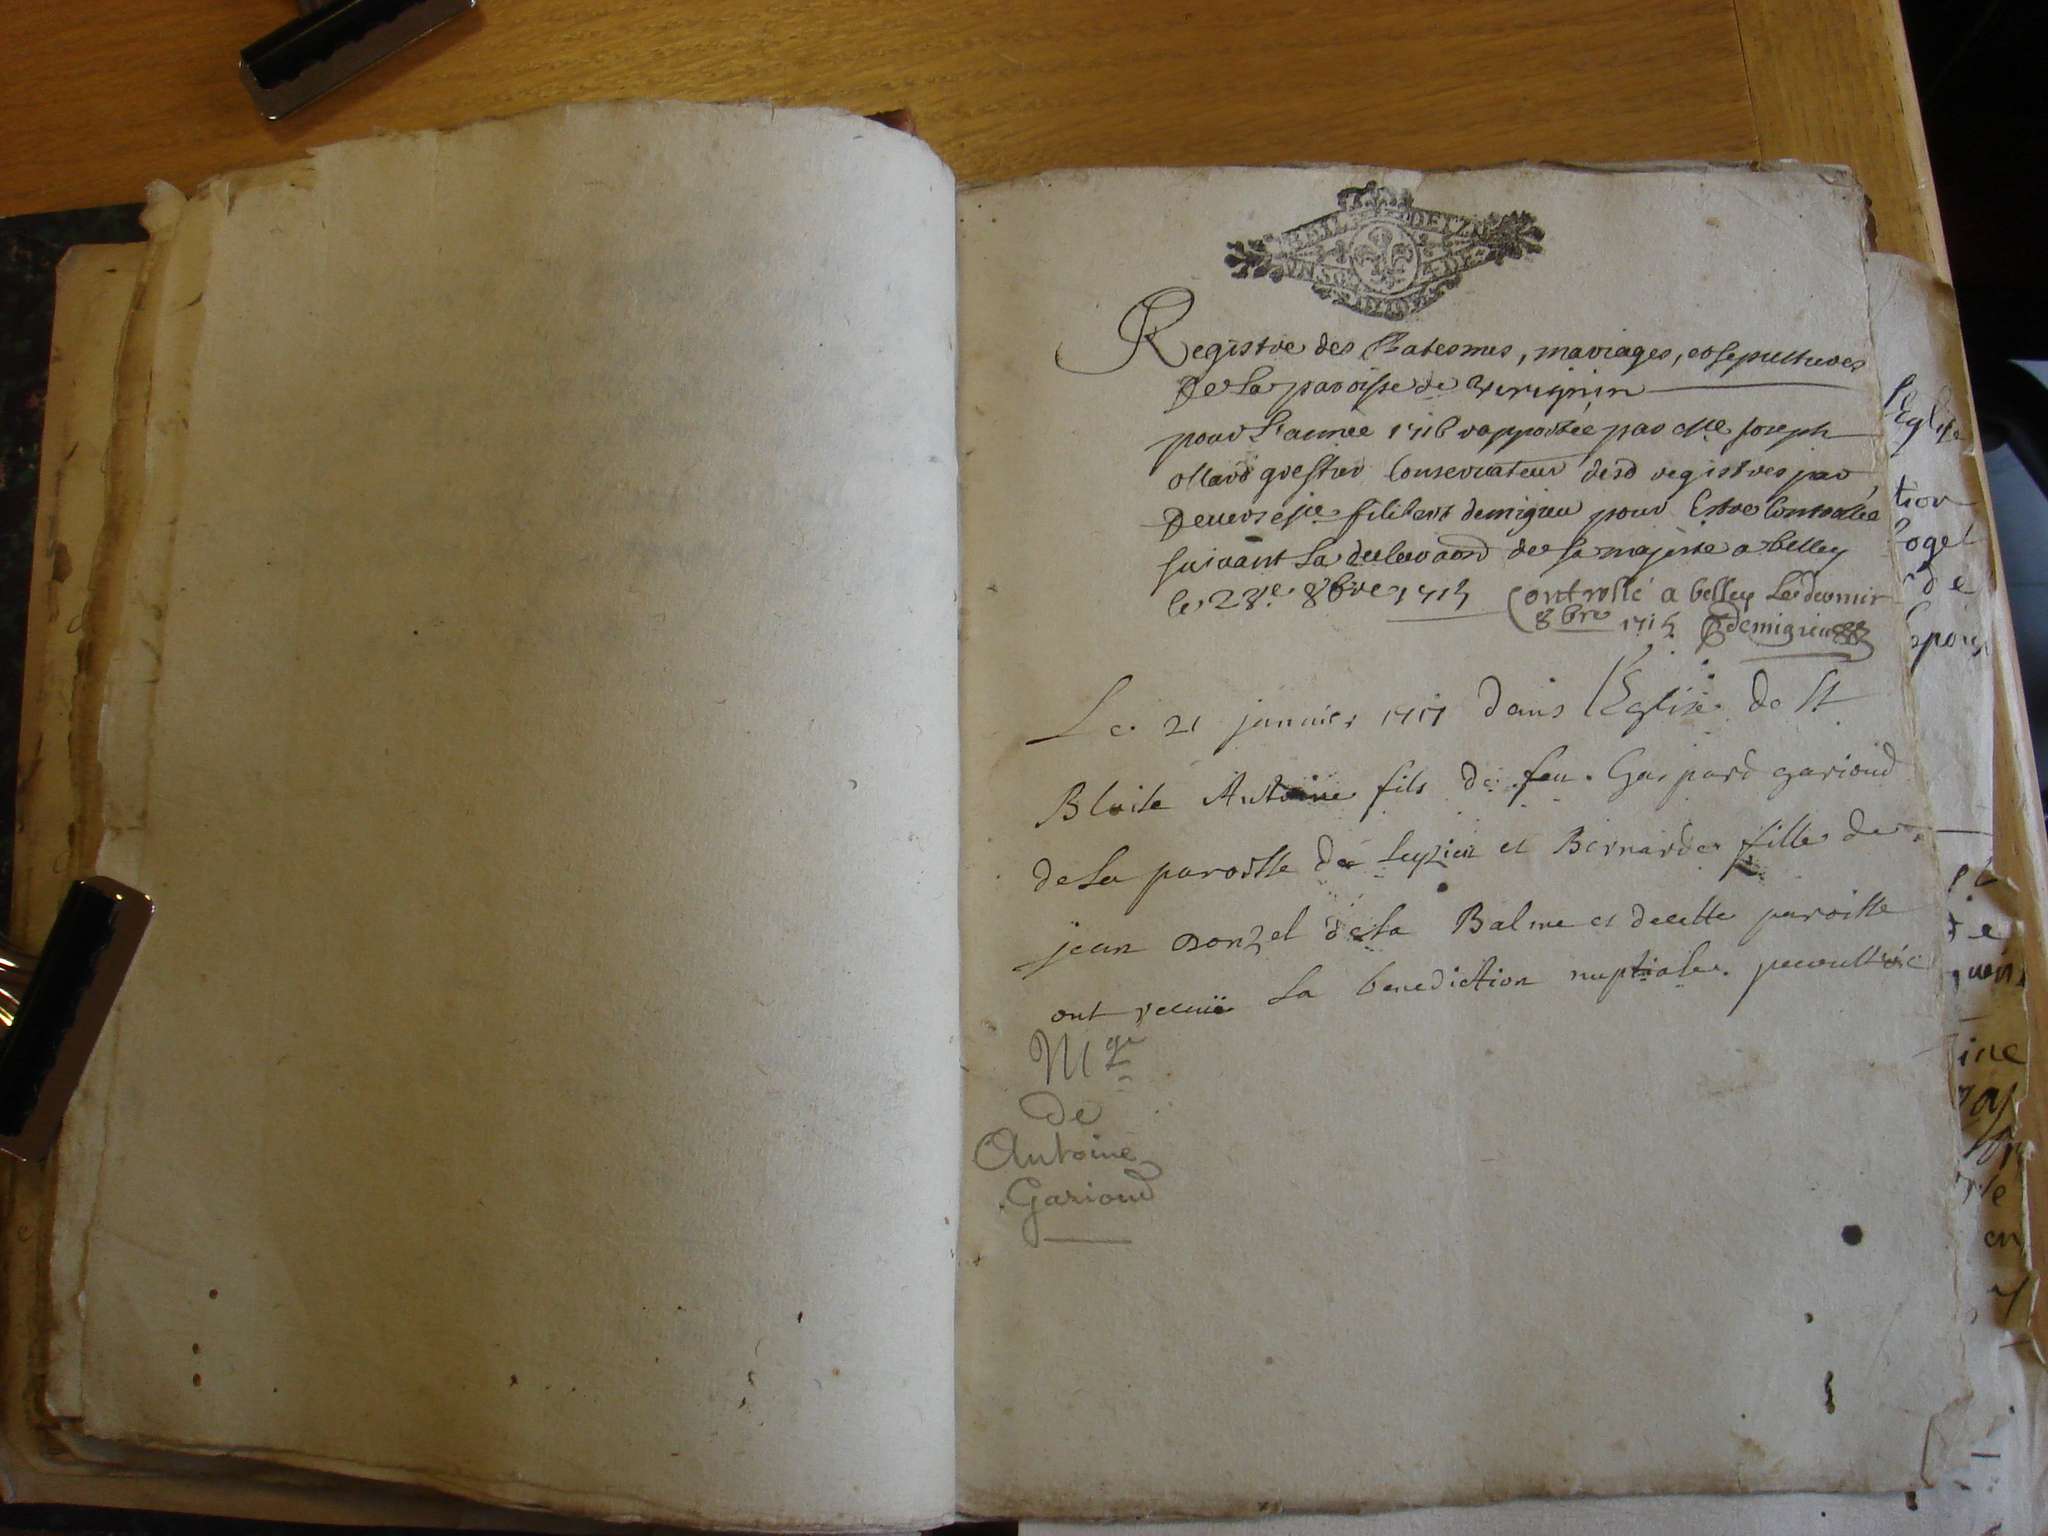 Registre des Batesmes, mariages, et sepultures
De la paroisse de virignin
pour L'année 1716 rapportée par Me Joseph
ollard greffier Conservateur desd registres par
Devers Filibert demigieu pour Estre Controllée
suivant La de sa majesté a belley
le 28e 8bre 1715 Controllé a belley Le dernier
8bre 1715 demigieu
Le 21 janvier 1717 dans l'Eglise de St
Blaise Antoine fils de feu Gaspard garioud
de la paroisse de et Bernarde fille de
jean de la Balme et de cette paroisse
ont receu la benediction nuptiale
Mge
de
Antoine
Garioud
l'Eglise
tion
de
Epoux
ine
en